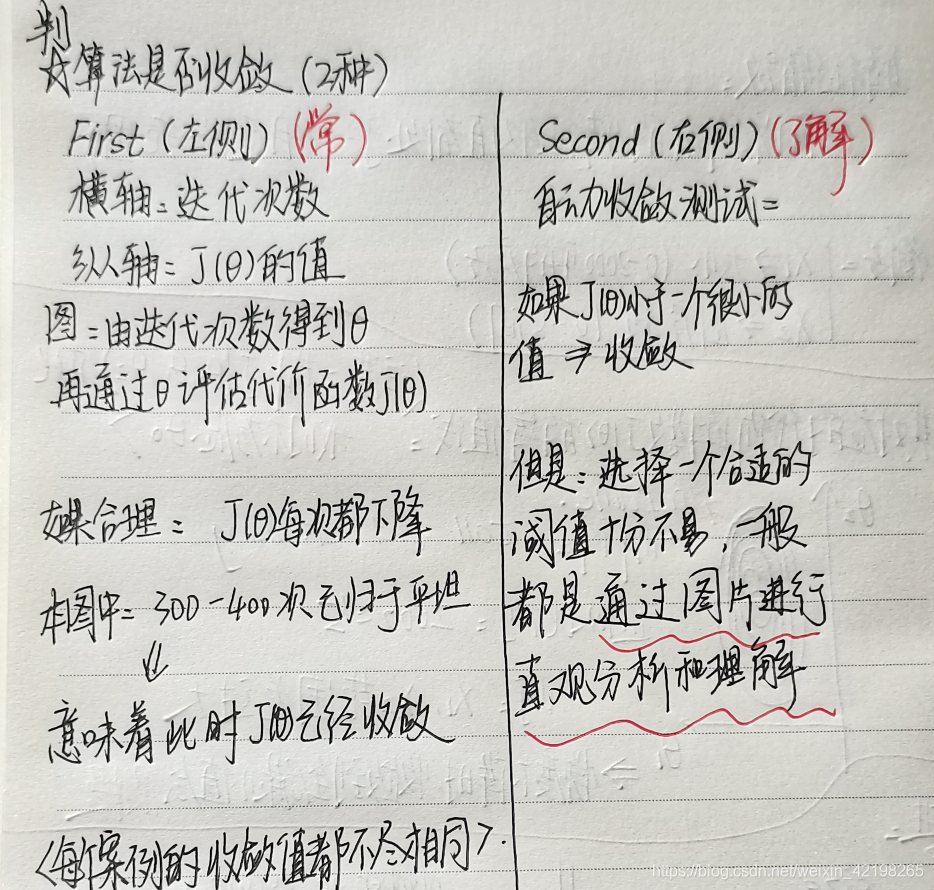 判
☆算法是否收敛（2种）
First（左侧）（常）
横轴：迭代次数
纵轴：J(θ)的值
图：由迭代次数得到θ
再通过θ评估代价函数J(θ)
如果合理：J(θ)每次都下降
本图中：300-400次已归于平坦
↓
意味着此时J(θ)已经收敛
〈每个案例的收敛值都不尽相同〉.
Second（右侧）（了解）
自动收敛测试：
如果J(θ)小于一个很小的
值 ⇒ 收敛
但是：选择一个合适的
阈值十分不易，一般
都是通过图片进行
直观分析和理解
https://blog.csdn.net/weixin_42198265